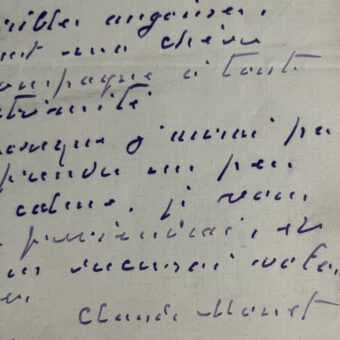 angoisses.
ma chère
compagne a tout
extrémité
lorsque j'aurai pu
prendre un peu
calme, je vous
préviendrai, et
recevrai votre
Claude Monet